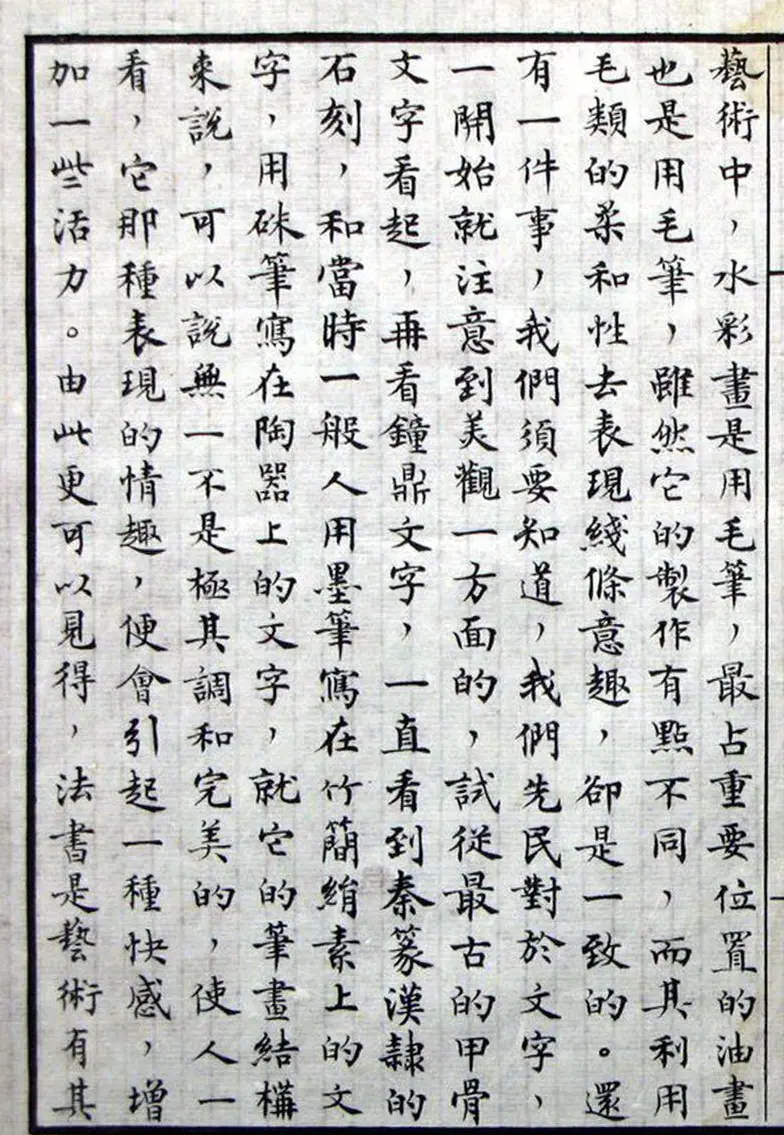 藝術中，水彩畫是用毛筆，最占重要位置的油畫
也是用毛筆，雖然它的製作有點不同，而其利用
毛類的柔和性去表現綫條意趣，卻是一致的。還
有一件事，我們須要知道，我們先民對於文字，
一開始就注意到美觀一方面的，試從最古的甲骨
文字看起，再看鐘鼎文字，一直看到秦篆漢隸的
石刻，和當時一般人用墨筆寫在竹簡絹素上的文
字，用硃筆寫在陶器上的文字，就它的筆畫結構
來說，可以說無一不是極其調和完美的，使人一
看，它那種表現的情趣，便會引起一種快感，增
加一些活力。由此更可以見得，法書是藝術有其